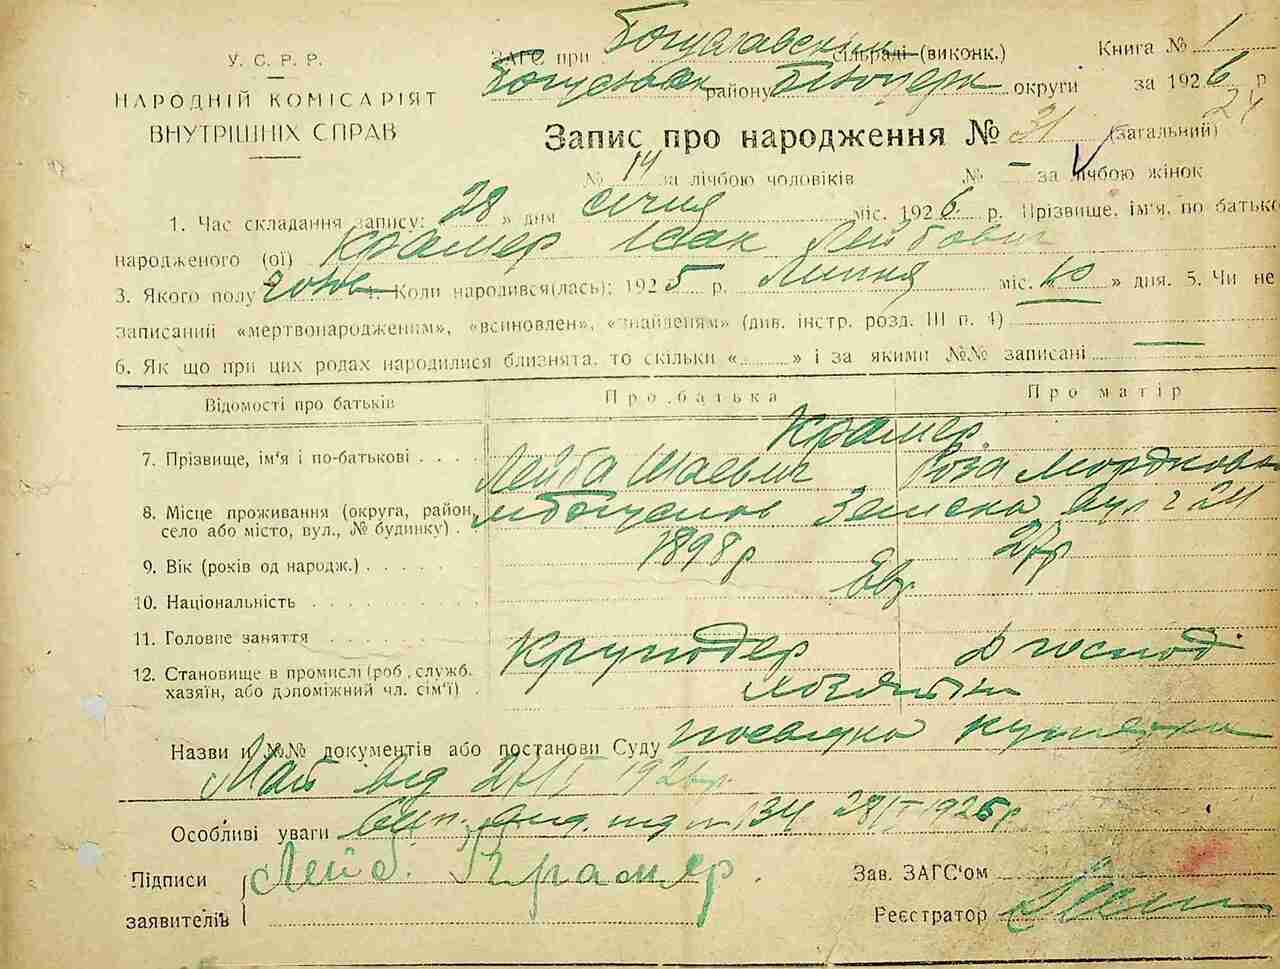 У. С. Р. Р.
НАРОДНІЙ КОМІСАРІЯТ
ВНУТРІШНІХ СПРАВ
ЗАГС при Богуславским сільраді (виконк.) Книга № 1
району округи за 1926 р
Запис про народження № 31 (загальний) 24
№ 14 за лічбою чоловіків № – за лічбою жінок
1. Час складання запису: 28 » дня січня міс. 1926 р. Прізвище, ім'я, по батькові
народженого (ої) Крамер Ісак Лейбович
3. Якого полу чолов 4. Коли народився(лась): 1925 р. Липня міс. 10 » дня. 5. Чи не
записаний «мертвонародженим», «всиновлен», «знайденям» (див. інстр. розд. III п. 4)
6. Як що при цих родах народилися близнята, то скільки « » і за якими №№ записані —
Відомості про батьків Про батька Про матір
Крамер
7. Прізвище, ім'я і по-батькові . . . Лейба Шаевич Роза Мордковна
8. Місце проживання (округа, район, село або місто, вул., № будинку) . . м Богуслав Земска вул 24
9. Вік (років од народж.) . . . . . 1898 р 27 р
10. Національність . . . . . . . . Евр.
11. Головне заняття . . . . . . . Круподер Д господ
12. Становище в промислі (роб., служб. хазяїн, або допоміжний чл. сім'ї) . хозяїн
Назви и №№ документів або постанови Суду посвідка
від 27/I 1926 р.
Особліві уваги 134 28/I 1926 р.
Підписи Лейб. Крамер. Зав. ЗАГС'ом
заявителів Реєстратор